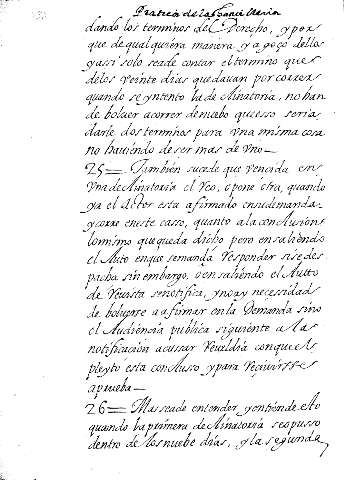 Practica de la Cancilleria
dando los terminos del Derecho, y por
que de qualquiera manera ya goço dellos
y assi solo seade contar el termino que
delos veinte dias quedauan por correr
quando se yntento la declinatoria, no han
de boluer acorrer denuebo qu esso seria
darle dos terminos para vna misma cosa
no hauiendo de ser mas de vno—
25= Tambien sucede que vencida en
vna declinatoria el Reo, opone otra, quando
ya el Actor esta afirmado ensudemanda
y corre eneste casso, quanto ala conclusion
lo mismo que queda dicho pero en saliendo
el Auto en que semanda responder si se des
pacha sin embargo, o en saliendo el Autto
de Reuista senotifica, y no ay necessidad
de boluerse a afirmar en la Demanda sino
el Audiencia publica siguiente a la
notificacion acussar Reueldia con que el
pleyto esta concluso y para reciuirsse
aprueba—
26= Mas seade entender, y entiende esto
quando la primera declinatoria se opusso
dentro de los nuebe dias, y la segunda